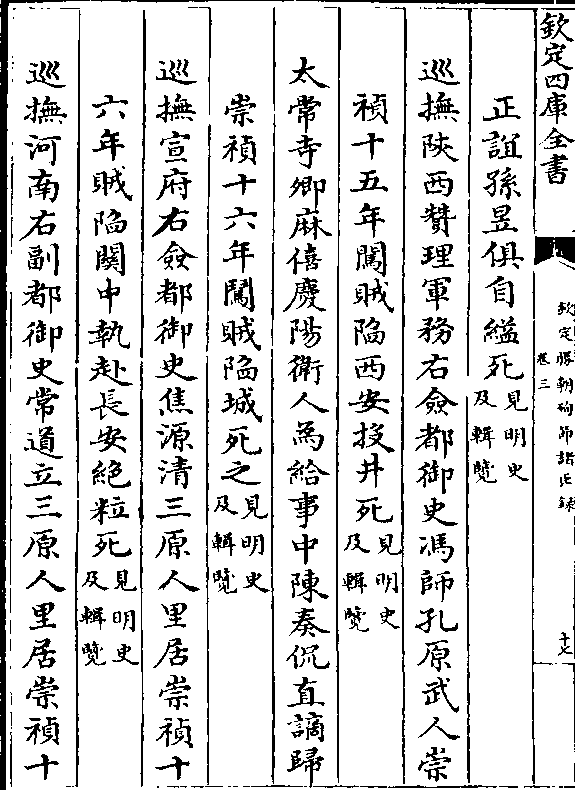 欽定四庫全書
欽定勝朝殉節諸臣錄
卷三
十七
正誼孫昱俱自縊死見明史及輯覽
巡撫陜西贊理軍務右僉都御史馮師孔原武人崇
禎十五年闖賊陷西安投井死見明史及輯覽
太常寺卿麻僖慶陽衛人為給事中陳奏侃直謫歸
崇禎十六年闖賊陷城死之見明史及輯覽
巡撫宣府右僉都御史焦源清三原人里居崇禎十
六年賊陷關中執赴長安絶粒死見明史及輯覽
巡撫河南右副都御史常道立三原人里居崇禎十